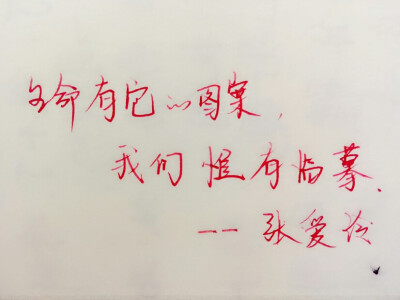 生命有它的图案,
我们惟有临摹.
-- 张爱玲